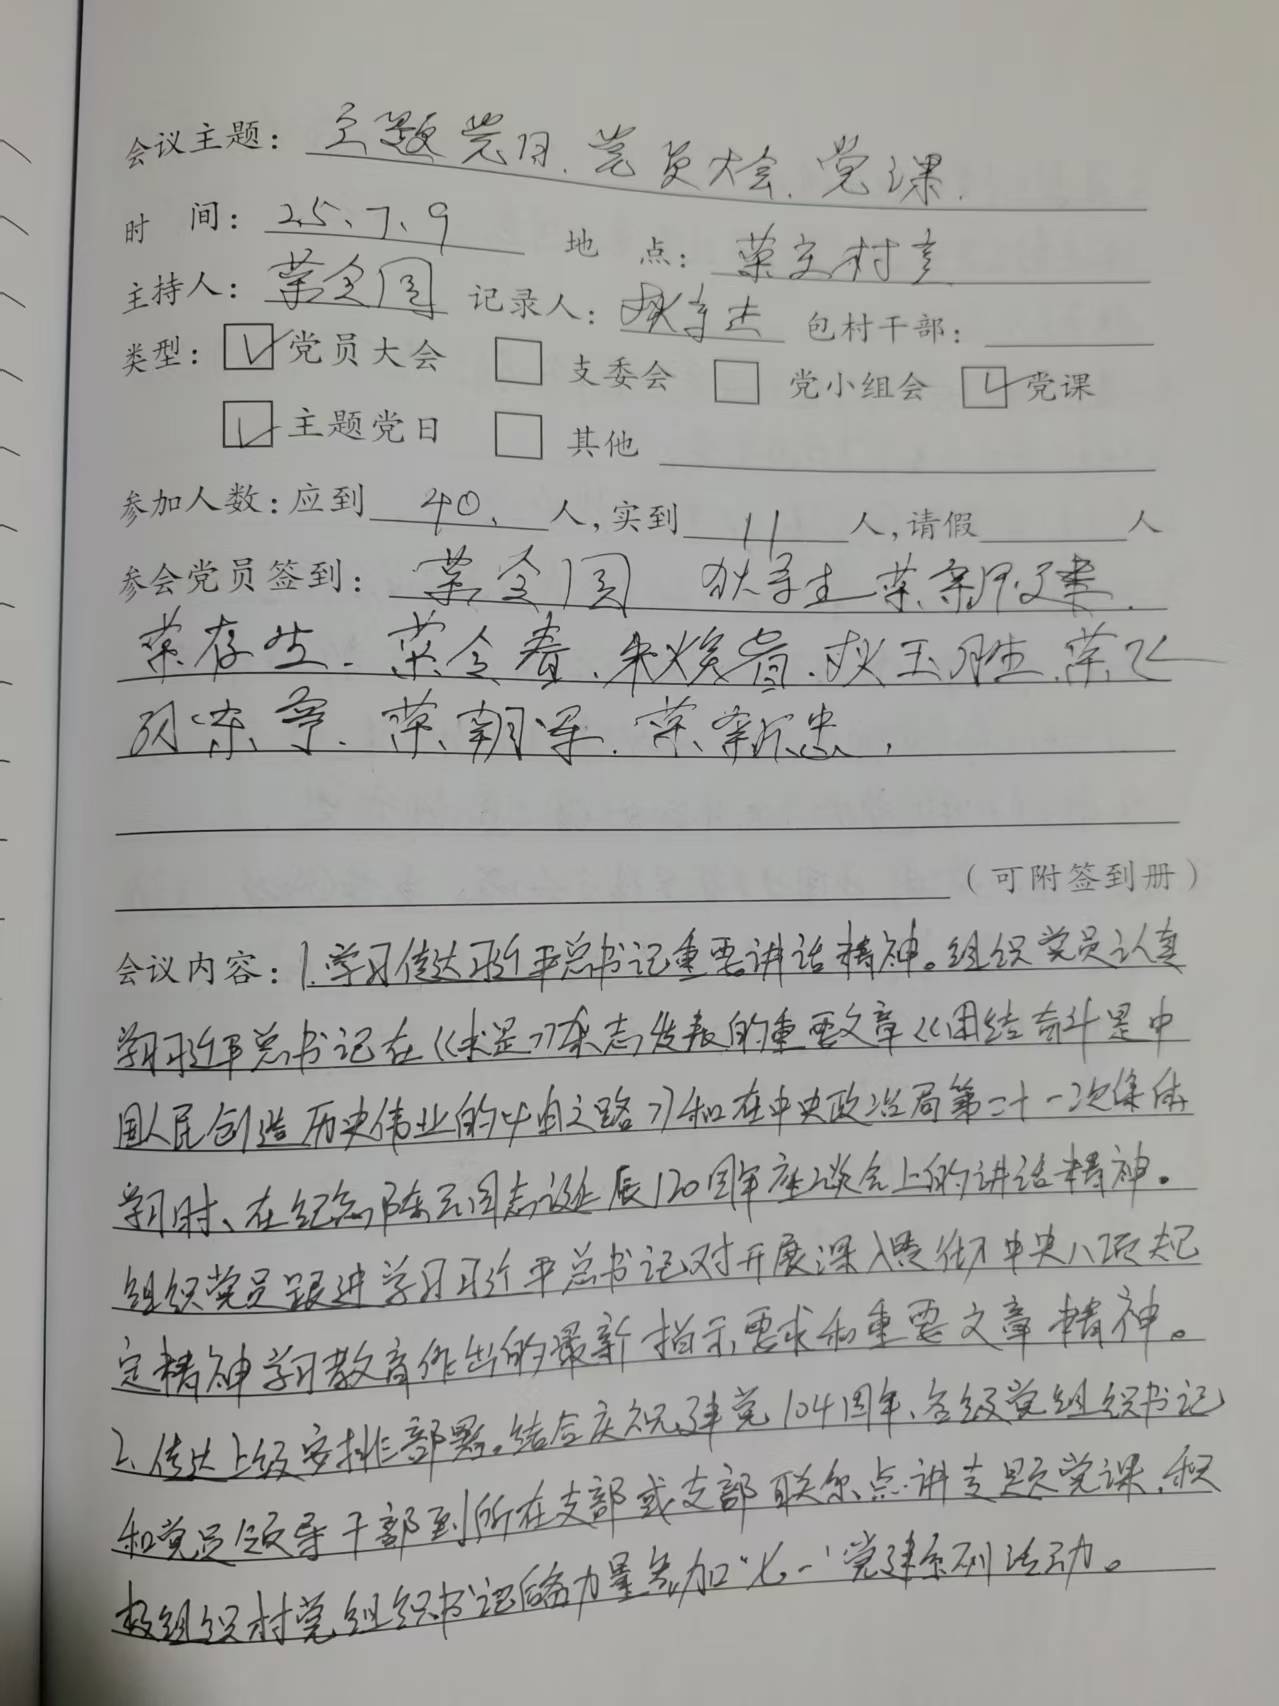 会议主题：主题党日、党员大会、党课.
时 间：25、7、9 地 点：荣文村
主持人：荣全国 记录人： 包村干部：
类型：☑党员大会 □ 支委会 □ 党小组会 ☑党课
☑主题党日 □ 其他
参加人数：应到 40、人，实到 11 人，请假 人
参会党员签到：荣全国
荣存生、荣令春、玉胜、荣飞
荣朝军、荣新忠，
（可附签到册）
会议内容：1.学习传达习近平总书记重要讲话精神。组织党员认真
学习习近平总书记在《求是》杂志发表的重要文章《团结奋斗是中
国人民创造历史伟业的必由之路》和在中央政治局第二十一次集体
学习时、在纪念陈云同志诞辰120周年座谈会上的讲话精神。
组织党员跟进学习习近平总书记对开展深入贯彻中央八项规
定精神学习教育作出的最新指示要求和重要文章精神。
2、传达上级安排部署。结合庆祝建党104周年、各级党组织书记
和党员领导干部到所在支部或支部联系点讲专题党课，积
极组织村党组织书记后备力量参加“七一”党建系列活动。